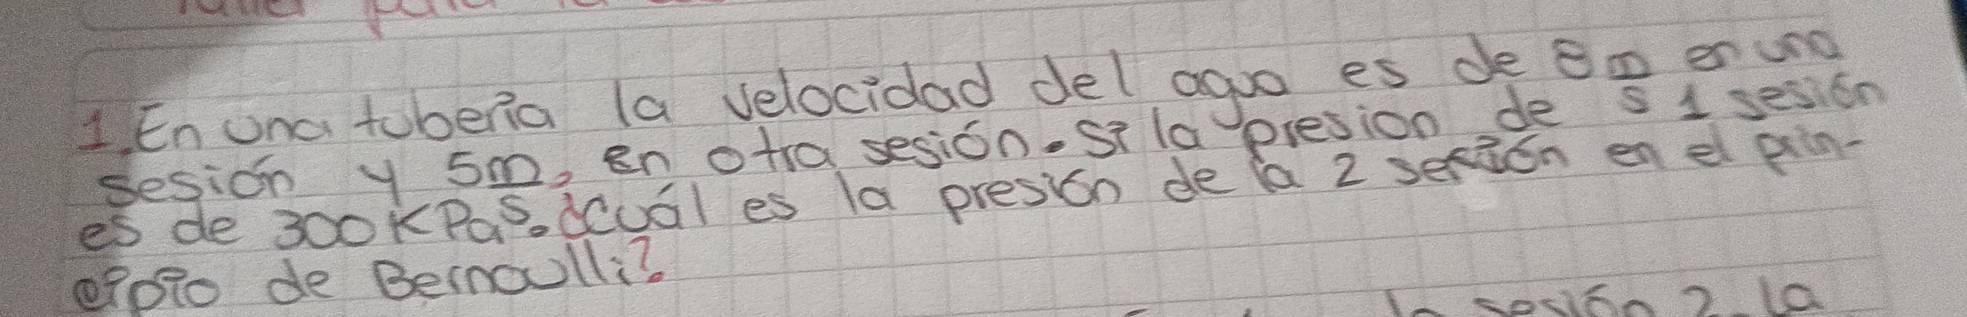 1. En una tuberia la velocidad del agua es de 8m en una
s
sesión y 5m, en otra sesión. Si la presion de 1 sesión
s
es de 300KPa. ¿cuál es la presión de la 2 sesión en el prin-
cipio de Bernoulli?
sesión 2 la